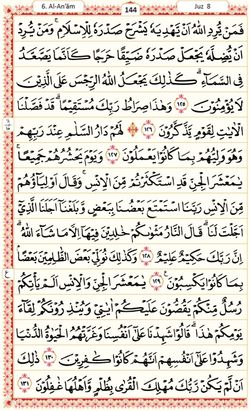 6. Al-An'ām 144 Juz 8
فَمَنْ يُّرِدِ اللّٰهُ اَنْ يَّهْدِيَهٗ يَشْرَحْ صَدْرَهٗ لِلْاِسْلَامِ ۚ وَمَنْ يُّرِدْ
اَنْ يُّضِلَّهٗ يَجْعَلْ صَدْرَهٗ ضَيِّقًا حَرَجًا كَاَنَّمَا يَصَّعَّدُ
فِى السَّمَآءِ ؕ كَذٰلِكَ يَجْعَلُ اللّٰهُ الرِّجْسَ عَلَى الَّذِيْنَ
لَا يُؤْمِنُوْنَ ‏﴿۱۲۵﴾ وَهٰذَا صِرَاطُ رَبِّكَ مُسْتَقِيْمًا ؕ قَدْ فَصَّلْنَا
الْاٰيٰتِ لِقَوْمٍ يَّذَّكَّرُوْنَ ﴿۱۲۶﴾ لَهُمْ دَارُ السَّلٰمِ عِنْدَ رَبِّهِمْ
وَهُوَ وَلِيُّهُمْ بِمَا كَانُوْا يَعْمَلُوْنَ ﴿۱۲۷﴾ وَيَوْمَ يَحْشُرُهُمْ جَمِيْعًا ۚ
يٰمَعْشَرَ الْجِنِّ قَدِ اسْتَكْثَرْتُمْ مِّنَ الْاِنْسِ ۚ وَقَالَ اَوْلِيٰٓـؤُهُمْ
مِّنَ الْاِنْسِ رَبَّنَا اسْتَمْتَعَ بَعْضُنَا بِبَعْضٍ وَّبَلَغْنَاۤ اَجَلَنَا الَّذِىْۤ
اَجَّلْتَ لَنَا ؕ قَالَ النَّارُ مَثْوٰىكُمْ خٰلِدِيْنَ فِيْهَاۤ اِلَّا مَا شَآءَ اللّٰهُ ؕ
اِنَّ رَبَّكَ حَكِيْمٌ عَلِيْمٌ ﴿۱۲۸﴾ وَكَذٰلِكَ نُوَلِّىْ بَعْضَ الظّٰلِمِيْنَ بَعْضًاۢ
بِمَا كَانُوْا يَكْسِبُوْنَ ﴿۱۲۹﴾ يٰمَعْشَرَ الْجِنِّ وَالْاِنْسِ اَلَمْ يَاْتِكُمْ
رُسُلٌ مِّنْكُمْ يَقُصُّوْنَ عَلَيْكُمْ اٰيٰتِىْ وَيُنْذِرُوْنَكُمْ لِقَآءَ
يَوْمِكُمْ هٰذَا ؕ قَالُوْا شَهِدْنَا عَلٰٓى اَنْفُسِنَا وَغَرَّتْهُمُ الْحَيٰوةُ الدُّنْيَا
وَشَهِدُوْا عَلٰٓى اَنْفُسِهِمْ اَنَّهُمْ كَانُوْا كٰفِرِيْنَ ﴿۱۳۰﴾ ذٰلِكَ
اَنْ لَّمْ يَكُنْ رَّبُّكَ مُهْلِكَ الْقُرٰى بِظُلْمٍ وَّاَهْلُهَا غٰفِلُوْنَ ﴿۱۳۱﴾